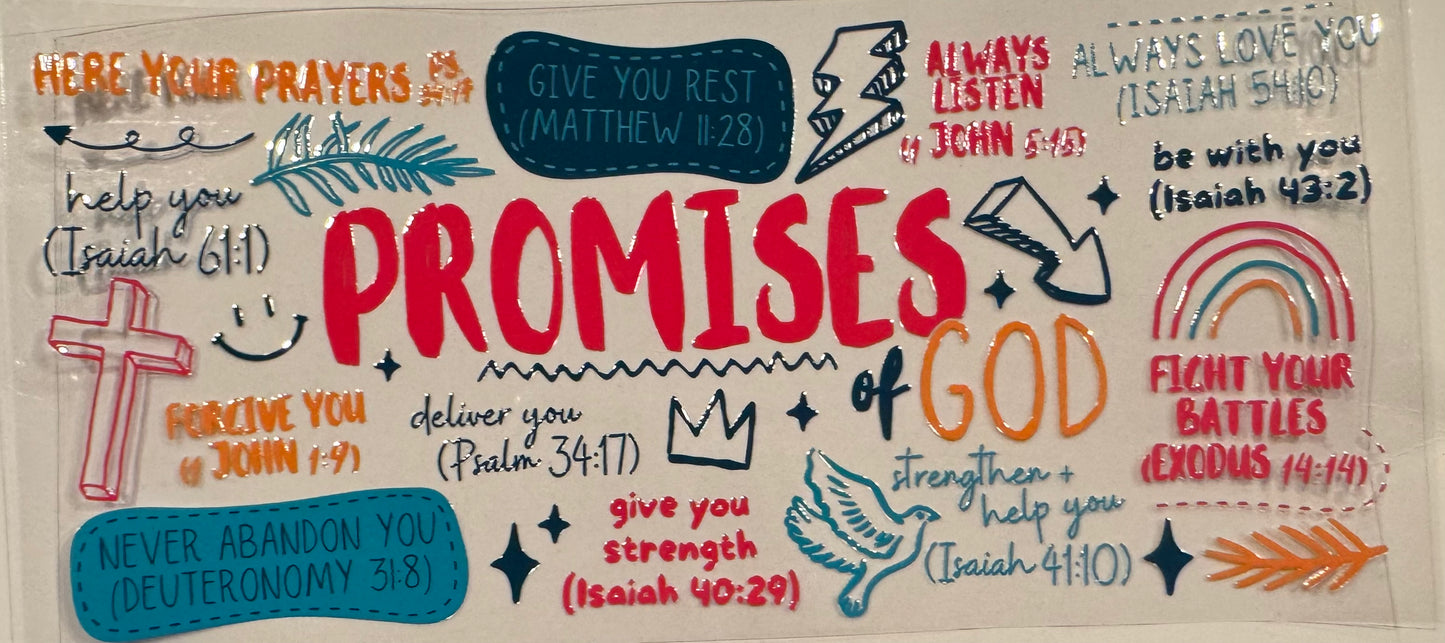 HERE YOUR PRAYERS PS 34:17
GIVE YOU REST
(MATTHEW 11:28)
ALWAYS
LISTEN
(1 JOHN 5:15)
ALWAYS LOVE YOU
(ISAIAH 54:10)
be with you
(Isaiah 43:2)
help you
(Isaiah 61:1)
PROMISES
of GOD
FIGHT YOUR
BATTLES
(EXODUS 14:14)
FORGIVE YOU
(1 JOHN 1:9)
deliver you
(Psalm 34:17)
strengthen +
help you
(Isaiah 41:10)
NEVER ABANDON YOU
(DEUTERONOMY 31:8)
give you
strength
(Isaiah 40:29)